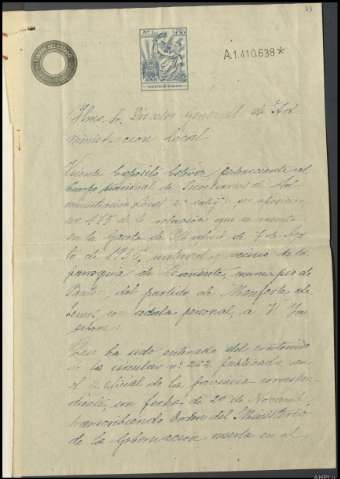 A.1.410.638*
Ilmo. Sr. Director General de Ad
ministracion Local
Vicente Expósito perteneciente al
Cuerpo Nacional de Secretarios de Ad
ministracion Local 2ª categª por oposicion
nº 475 de la relacion que se inserta
en la Gaceta de Madrid de 7 de
to de 193 , natural y vecino de la
parroquia de municipio de
Panton del partido de Monforte de
Lemos con cedula personal, a V. I.
expone:
Que ha sido enterado del contenido
de la circular nº 242 publicada en
el B. oficial de la provincia correspon
diente, con fecha de 20 de Novbre
transcribiendo Orden del Ministerio
de la Gobernacion inserta en el